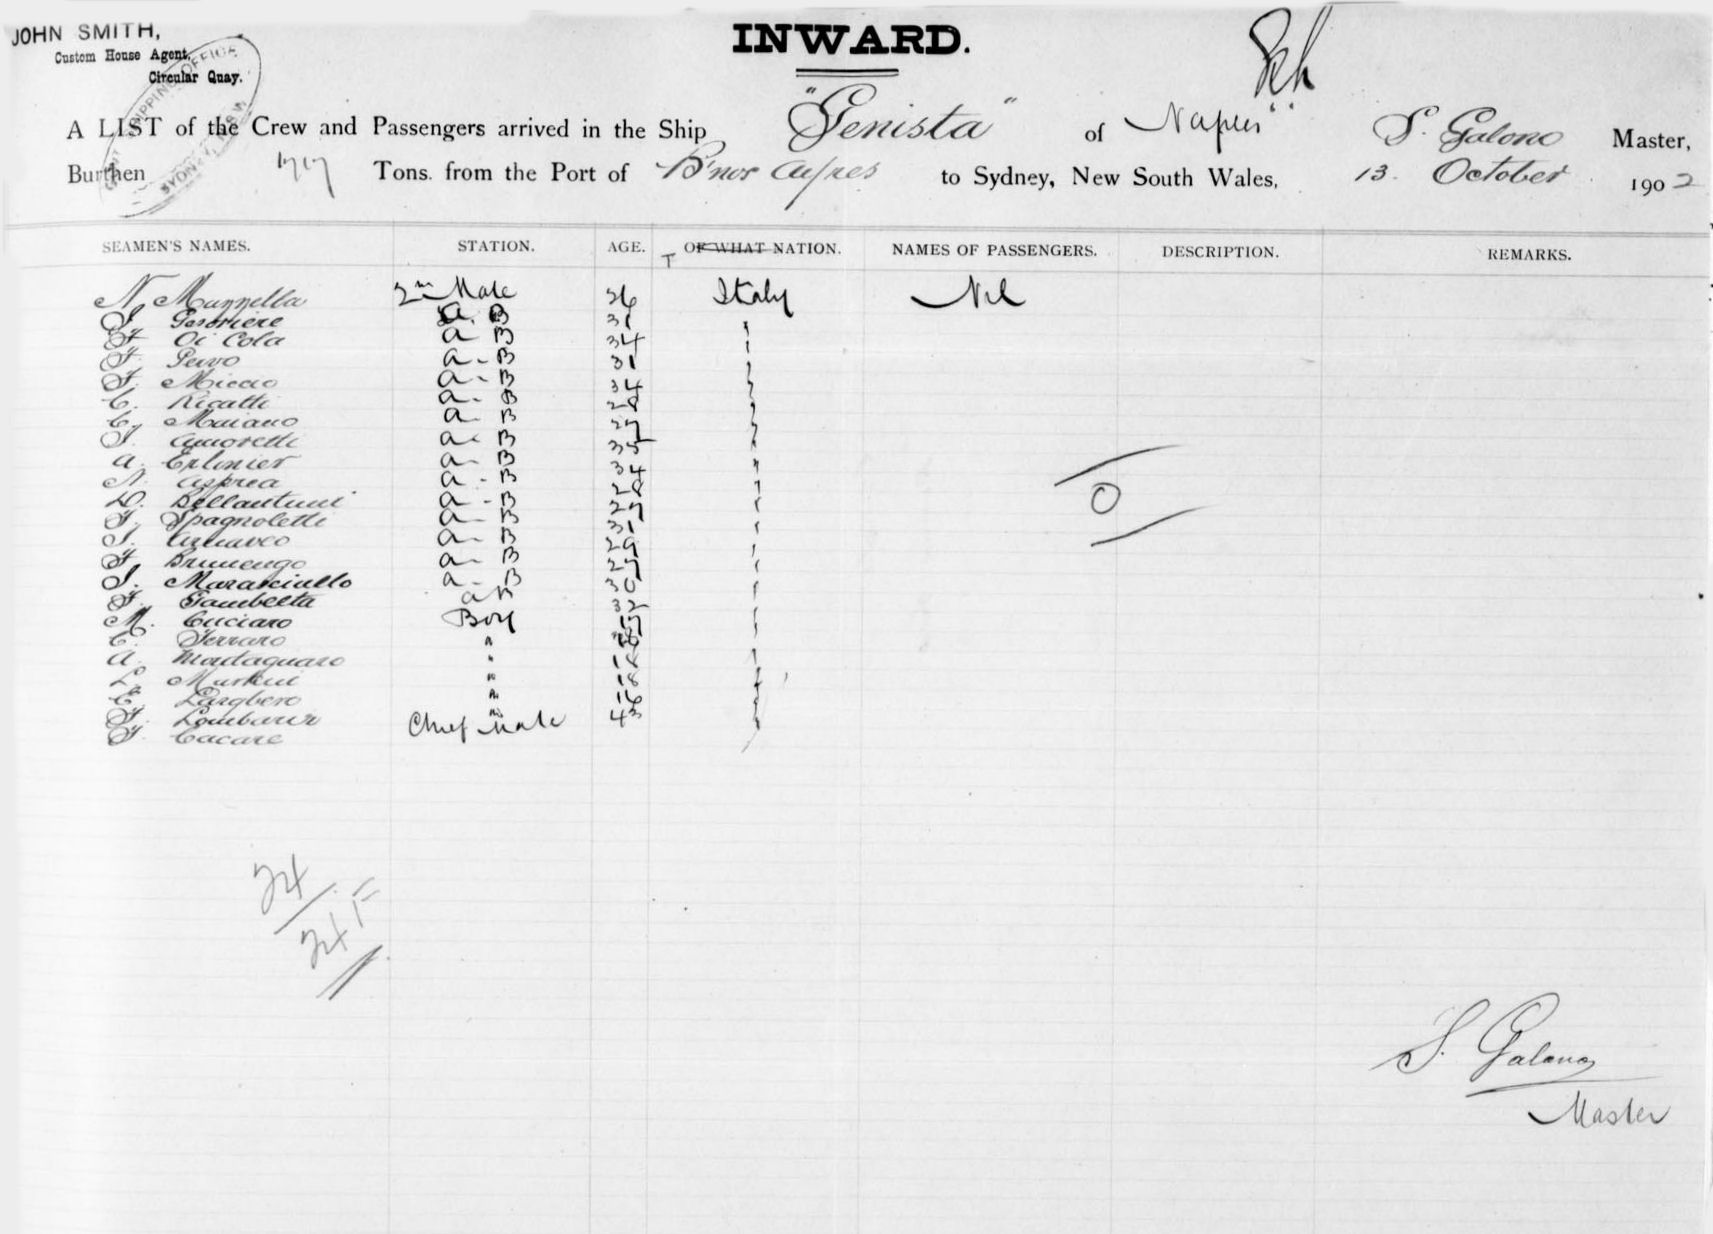 JOHN SMITH,
Custom House Agent,
Circular Quay.
SHIPPING OFFICE
SYDNEY, N.S.W
INWARD.
A LIST of the Crew and Passengers arrived in the Ship "Genista" of Naples S. Galono Master,
Burthen 1717 Tons. from the Port of B'nos Ayres to Sydney, New South Wales, 13. October 1902
SEAMEN'S NAMES. STATION. AGE. OF WHAT NATION. NAMES OF PASSENGERS. DESCRIPTION. REMARKS.
N. Mannella 2nd Mate 26 Italy Nil
A. B 31 "
F. Di Cola A B 34 "
F. A - B 31 "
F. Miccio A - B 34 "
C. Ricatti A - B "
C. Maiano A - B "
J. Amoretti A - B 35 "
A. A - B 34 "
N. Asprea A - B 24 "
D. Bellantuni A - B "
F. Spagnoletti A - B 31 "
A - B 29 "
F. Brunengo A - B "
J. Marasciullo A - B 30 "
F. Gambetta A B 32 "
M. Cuciaro Boy "
C. Ferraro " "
A. Montaguaro " "
L. Martini " 18 "
E. " "
F. " "
F. Cacace Chief Mate 43 "
O
24
24
S. Galono
Master